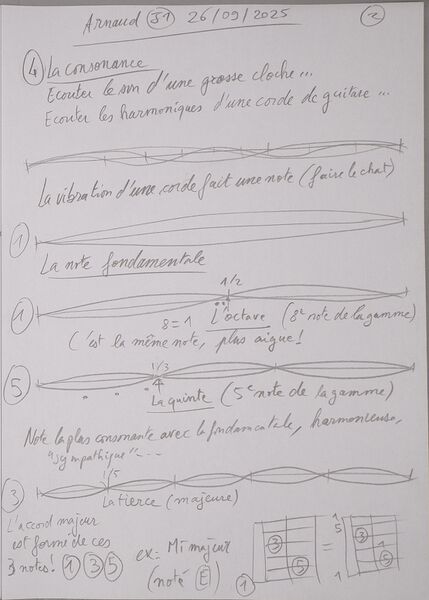 Arnaud S1 26/09/2025 2
4 La consonance
Ecouter le son d'une grosse cloche...
Ecouter les harmoniques d'une corde de guitare ...
La vibration d'une corde fait une note (faire le chat)
1
La note fondamentale
1/2
1
8=1 L'octave (8e note de la gamme)
C'est la même note, plus aigue!
1/3
5
La quinte (5e note de la gamme)
Note la plus consonante avec la fondamentale, harmonieuse,
"sympathique"...
1/5
3
La tierce (majeure)
L'accord majeur
est formé de ces
3 notes! 1 3 5
ex: Mi majeur
(noté E)
1 3 5 = 1 5 1 3 1 5